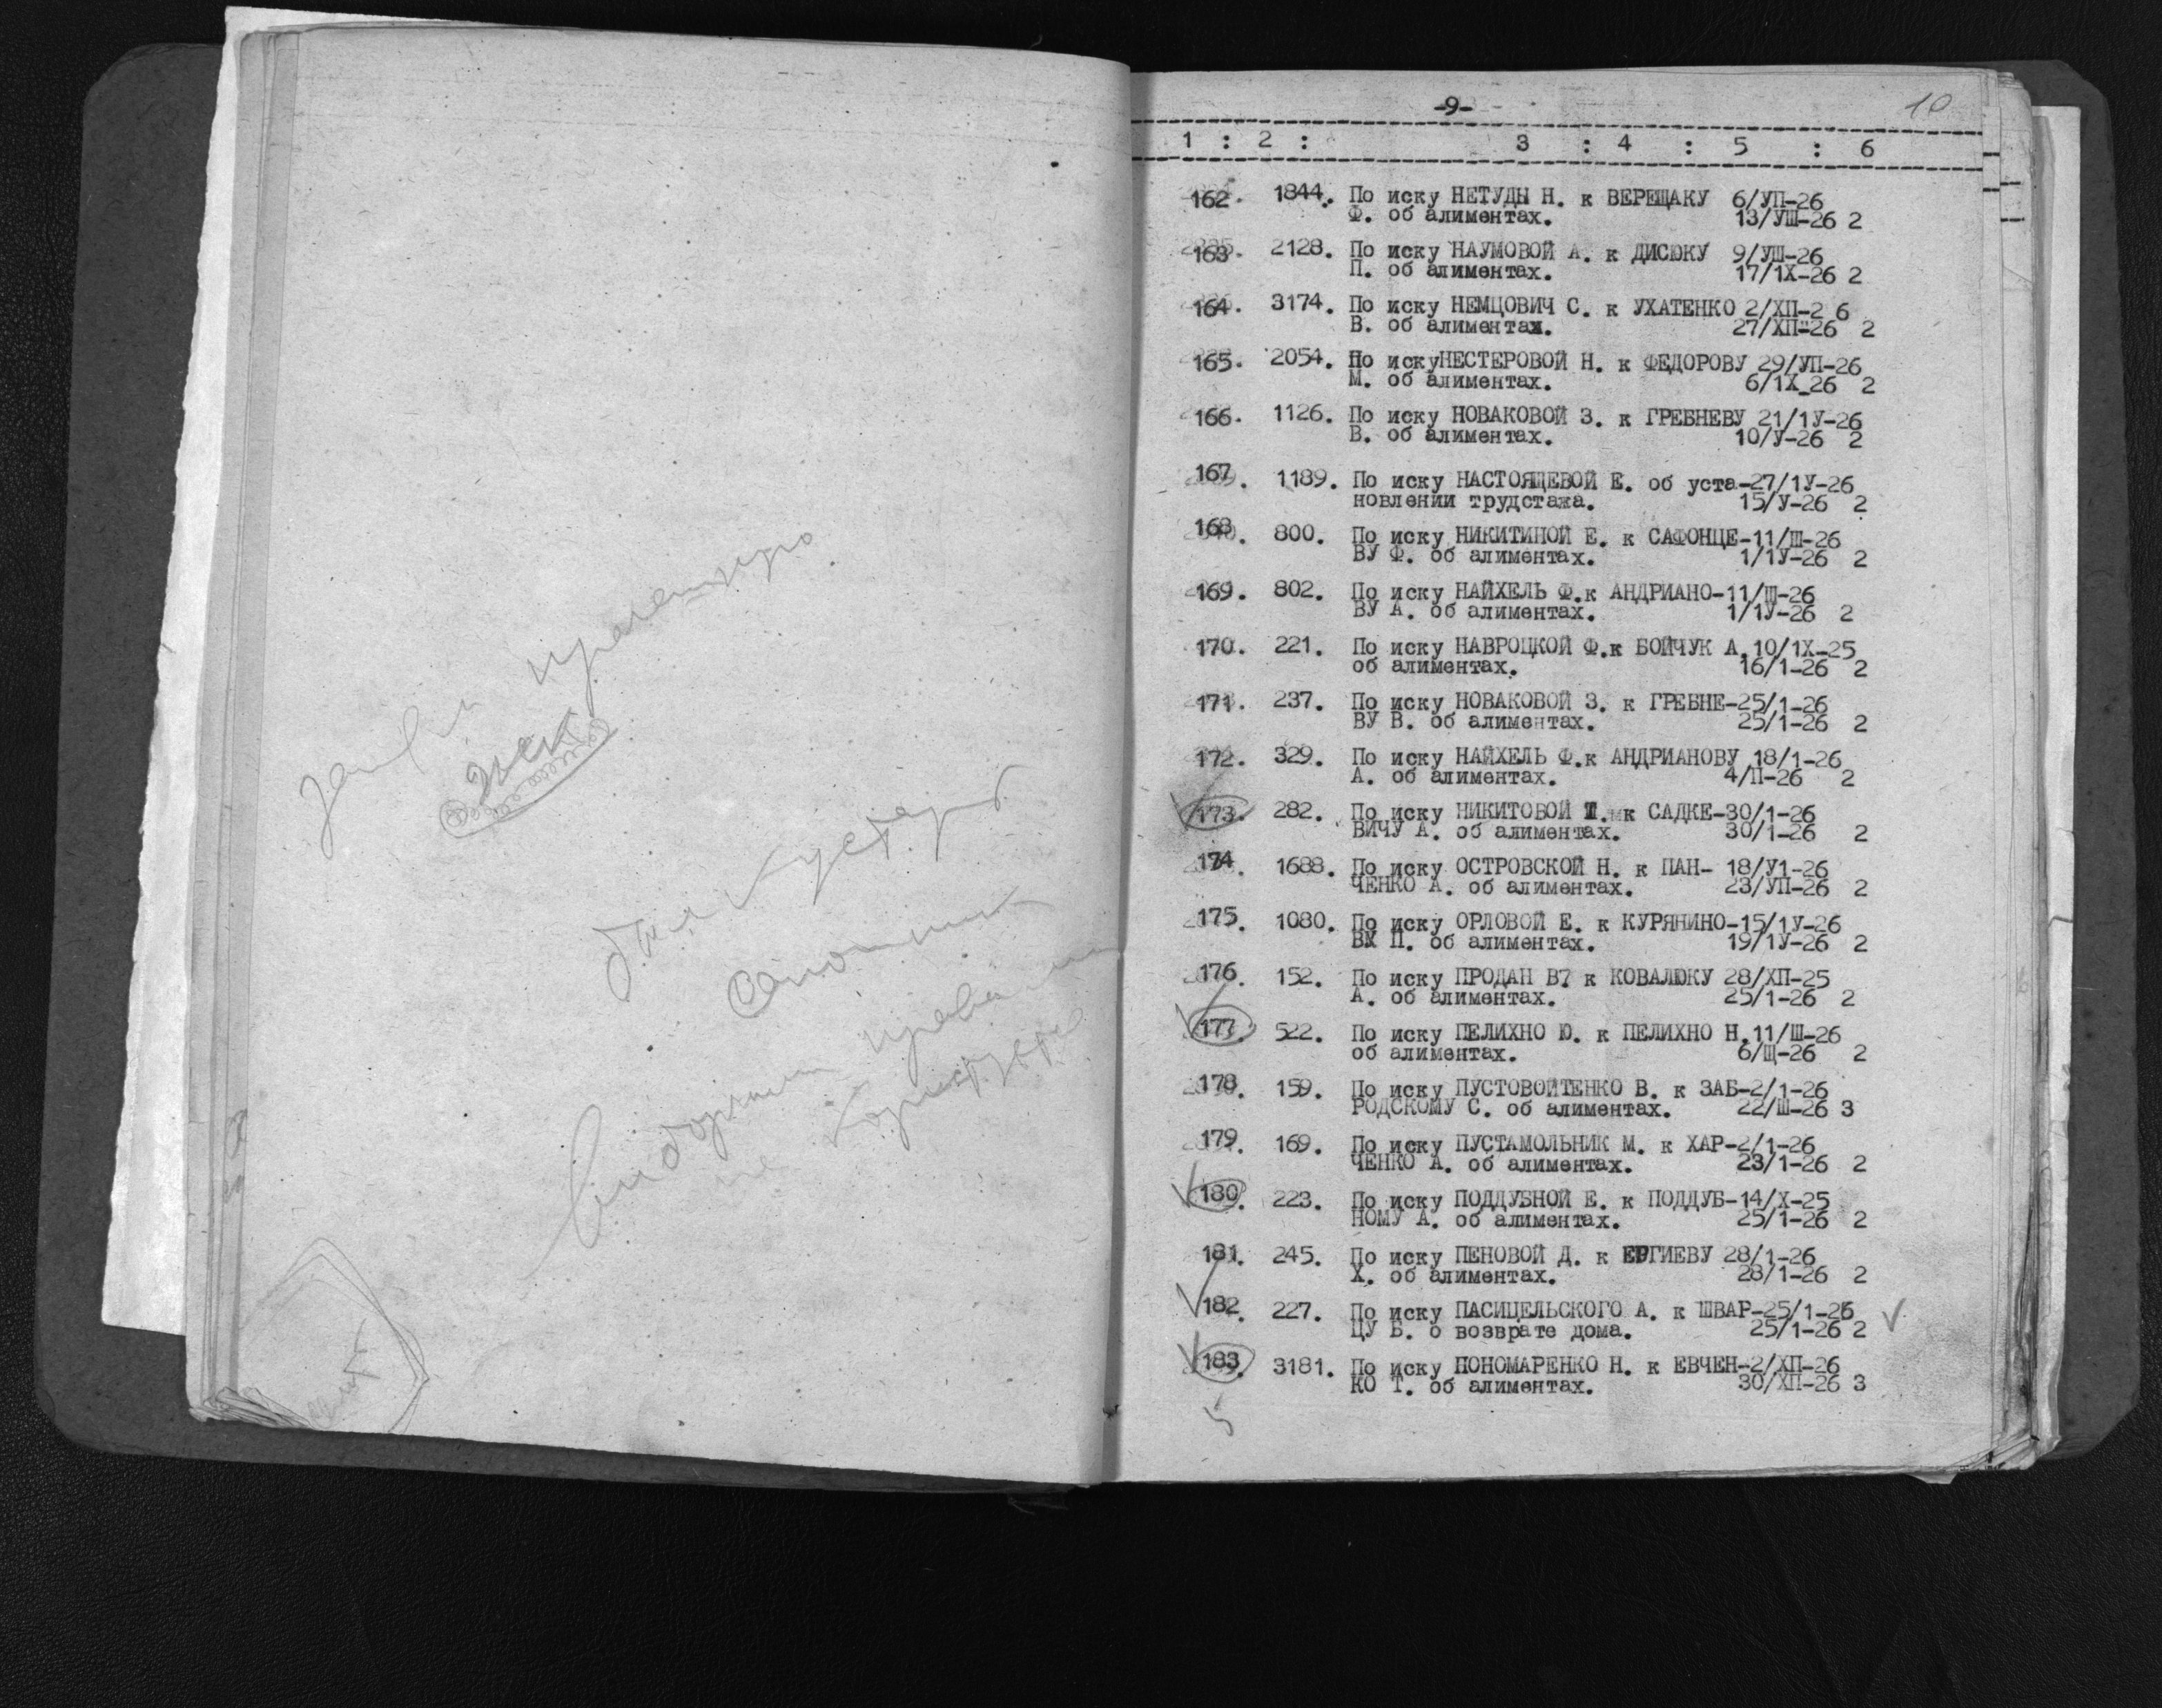 -9-
10
1 : 2 : 3 : 4 : 5 : 6
162. 1844. По иску НЕТУДЫ Н. к ВЕРЕЩАКУ 6/УП-26
Ф. об алиментах. 13/УШ-26 2
163. 2128. По иску НАУМОВОЙ А. к ДИСЮКУ 9/УШ-26
П. об алиментах. 17/1Х-26 2
164. 3174. По иску НЕМЦОВИЧ С. к УХАТЕНКО 2/ХП-2 6
В. об алиментах. 27/ХП-26 2
165. 2054. По искуНЕСТЕРОВОЙ Н. к ФЕДОРОВУ 29/УП-26
М. об алиментах. 6/1Х_26 2
166. 1126. По иску НОВАКОВОЙ З. к ГРЕБНЕВУ 21/1У-26
В. об алиментах. 10/У-26 2
167. 1189. По иску НАСТОЯЩЕВОЙ Е. об уста-27/1У-26
новлении трудстажа. 15/У-26 2
168. 800. По иску НИКИТИНОЙ Е. к САФОНЦЕ-11/Ш-26
ВУ Ф. об алиментах. 1/1У-26 2
169. 802. По иску НАЙХЕЛЬ Ф.к АНДРИАНО-11/Ш-26
ВУ А. об алиментах. 1/1У-26 2
170. 221. По иску НАВРОЦКОЙ Ф.к БОЙЧУК А.10/1Х-25
об алиментах. 16/1-26 2
171. 237. По иску НОВАКОВОЙ З. к ГРЕБНЕ-25/1-26
ВУ В. об алиментах. 25/1-26 2
172. 329. По иску НАЙХЕЛЬ Ф.к АНДРИАНОВУ 18/1-26
А. об алиментах. 4/П-26 2
173. 282. По иску НИКИТОВОЙ к САДКЕ-30/1-26
ВИЧУ А. об алиментах. 30/1-26 2
174. 1688. По иску ОСТРОВСКОЙ Н. к ПАН- 18/У1-26
ЧЕНКО А. об алиментах. 23/УП-26 2
175. 1080. По иску ОРЛОВОЙ Е. к КУРЯНИНО-15/1У-26
ВХ П. об алиментах. 19/1У-26 2
176. 152. По иску ПРОДАН В7 к КОВАЛЮКУ 28/ХП-25
А. об алиментах. 25/1-26 2
177. 522. По иску ПЕЛИХНО Ю. к ПЕЛИХНО Н.11/Ш-26
об алиментах. 6/Щ-26 2
178. 159. По иску ПУСТОВОЙТЕНКО В. к ЗАБ-2/1-26
РОДСКОМУ С. об алиментах. 22/Ш-26 3
179. 169. По иску ПУСТАМОЛЬНИК М. к ХАР-2/1-26
ЧЕНКО А. об алиментах. 23/1-26 2
180. 223. По иску ПОДДУБНОЙ Е. к ПОДДУБ-14/Х-25
НОМУ А. об алиментах. 25/1-26 2
181. 245. По иску ПЕНОВОЙ Д. к ЕРГИЕВУ 28/1-26
Х. об алиментах. 28/1-26 2
182. 227. По иску ПАСИЦЕЛЬСКОГО А. к ШВАР-25/1-26
ЦУ Б. о возврате дома. 25/1-26 2
183. 3181. По иску ПОНОМАРЕНКО Н. к ЕВЧЕН-2/ХП-26
КО Т. об алиментах. 30/ХП-26 3